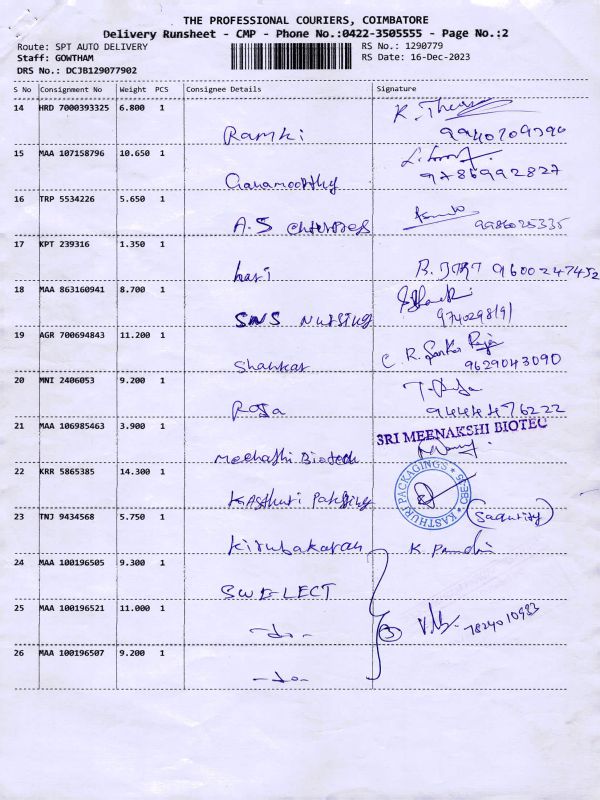 THE PROFESSIONAL COURIERS, COIMBATORE
Delivery Runsheet - CMP - Phone No.:0422-3505555 - Page No.:2
Route: SPT AUTO DELIVERY RS No.: 1290779
Staff: GOWTHAM RS Date: 16-Dec-2023
DRS No.: DCJB129077902
S No Consignment No Weight PCS Consignee Details Signature
14 HRD 7000393325 6.800 1
Ramki
15 MAA 107158796 10.650 1
9786992827
16 TRP 5534226 5.650 1
A.S 9986025335
17 KPT 239316 1.350 1
hari 9600247452
18 MAA 863160941 8.700 1
SNS Nursing
19 AGR 700694843 11.200 1
C. R.
Shankar 9629043090
20 MNI 2406053 9.200 1
Roja 9444476222
21 MAA 106985463 3.900 1
SRI MEENAKSHI BIOTEC
Meenathi Biotech
22 KRR 5865385 14.300 1
KASTHURI PACKAGINGS CBE
Kasthuri
23 TNJ 9434568 5.750 1
Kirubakaran K.
24 MAA 100196505 9.300 1
SWE-LECT
25 MAA 100196521 11.000 1
-do- 3 7824010983
26 MAA 100196507 9.200 1
-do-